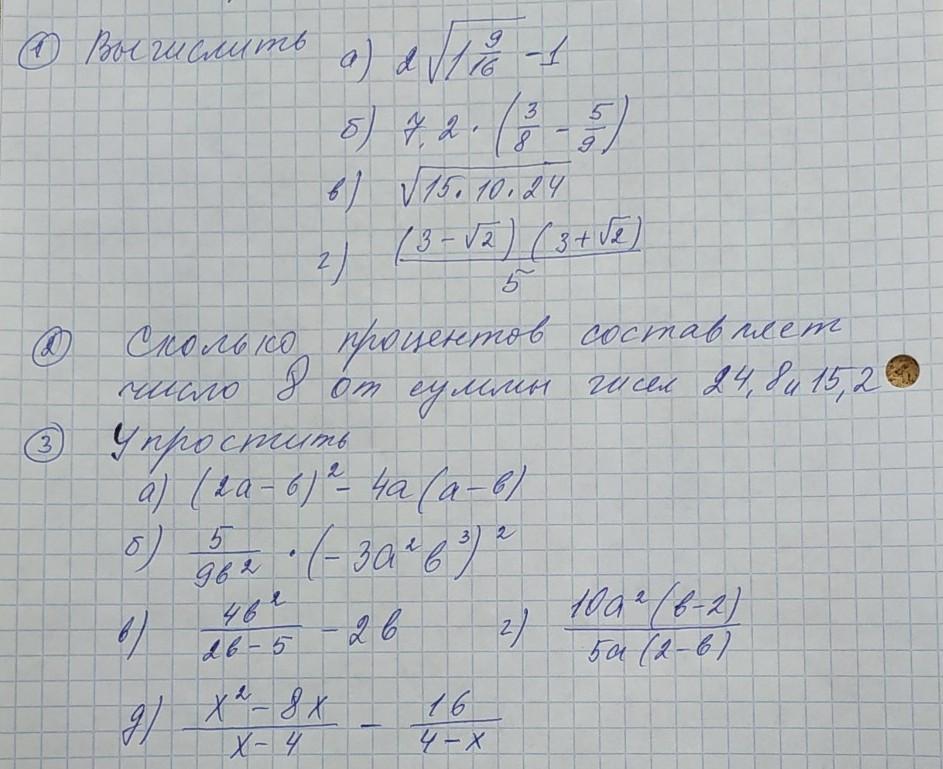 ① Вычислить а) 2√(1 9/16) - 1
б) 7,2 · (3/8 - 5/9)
в) √(15·10·24)
г) (3-√2)(3+√2)/5
② Сколько процентов составляет
число 8 от суммы чисел 24,8 и 15,2
③ Упростить
а) (2a-b)² - 4a(a-b)
б) 5/(9b²) · (-3a²b³)²
в) 4b²/(2b-5) - 2b г) 10a²(b-2)/(5a(2-b))
д) (x²-8x)/(x-4) - 16/(4-x)